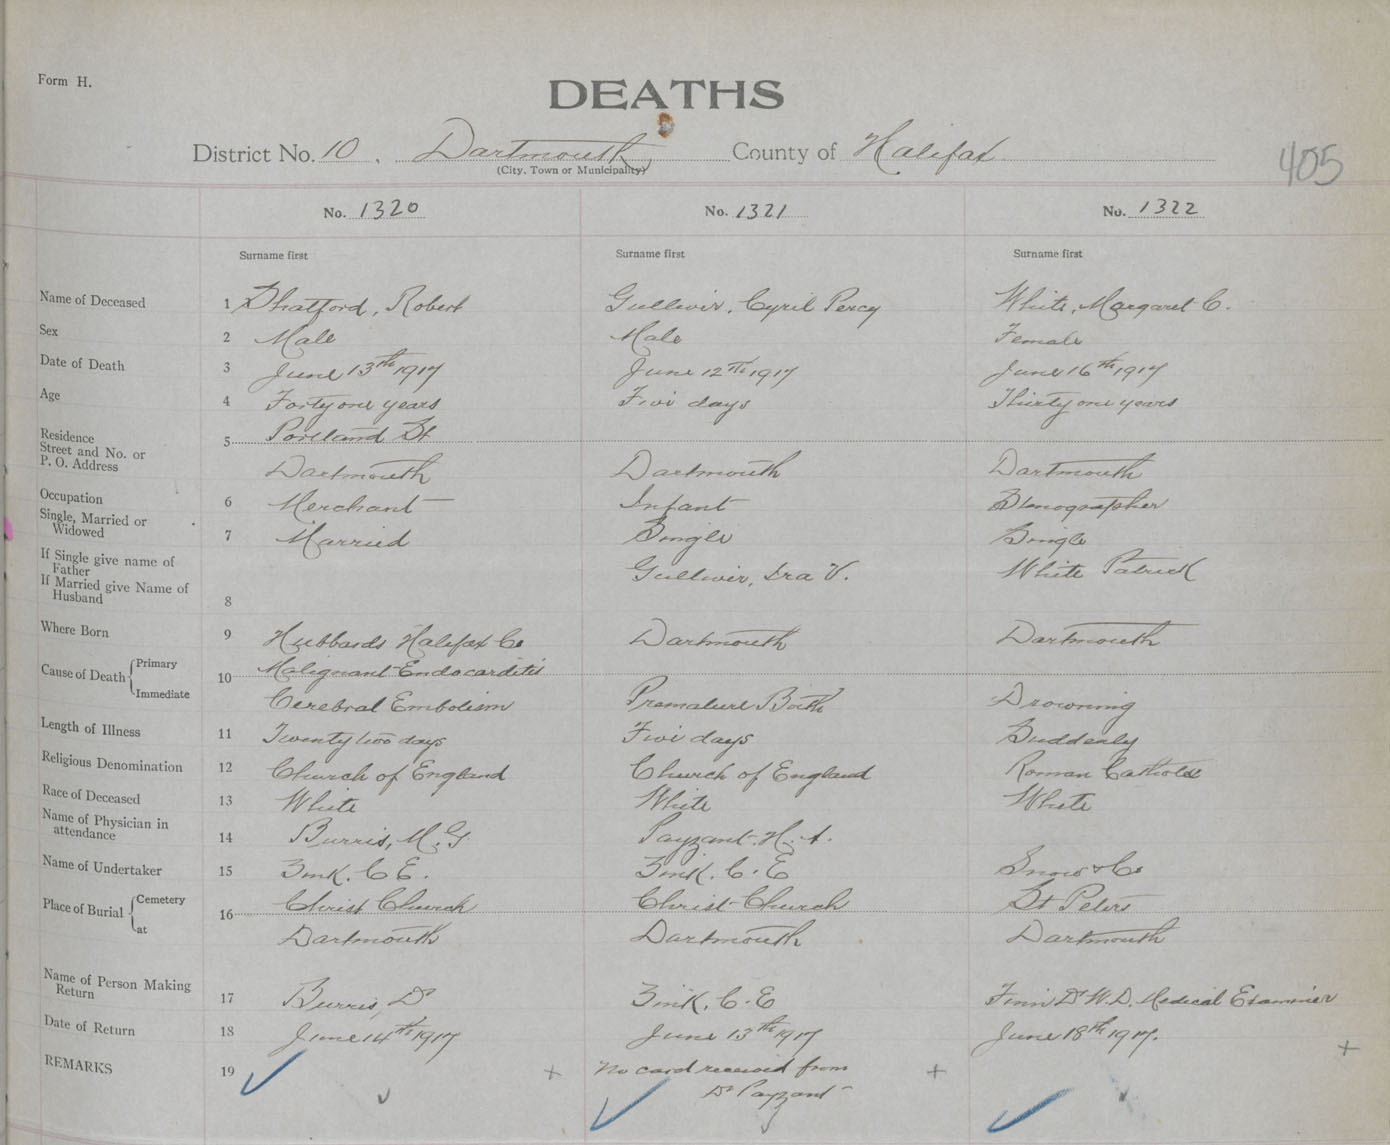 Form H.
DEATHS
District No. 10. Dartmouth County of Halifax
(City, Town or Municipality)
405
No. 1320 No. 1321 No. 1322
Surname first Surname first Surname first
Name of Deceased 1 Shatford, Robert Gulliver, Cyril Percy White, Margaret C.
Sex 2 Male Male Female
Date of Death 3 June 13th 1917 June 12th 1917 June 16th 1917
Age 4 Forty one years Five days Thirty one years
Residence 5 Portland St
Street and No. or
P. O. Address Dartmouth Dartmouth Dartmouth
Occupation 6 Merchant Infant Stenographer
Single, Married or
Widowed 7 Married Single Single
If Single give name of
Father Gulliver, Ira V. White Patrick
If Married give Name of
Husband 8
Where Born 9 Hubbards Halifax Co Dartmouth Dartmouth
Cause of Death Primary 10 Malignant Endocarditis
Immediate Cerebral Embolism Premature Birth Drowning
Length of Illness 11 Twenty two days Five days Suddenly
Religious Denomination 12 Church of England Church of England Roman Catholic
Race of Deceased 13 White White White
Name of Physician in
attendance 14 Burris, M. G. Payzant. H. A.
Name of Undertaker 15 Zink. C E. Zink. C. E Snow & Co
Place of Burial Cemetery 16 Christ Church Christ Church St Peters
at Dartmouth Dartmouth Dartmouth
Name of Person Making
Return 17 Burris, Dr Zink, C. E Finn Dr W. D. Medical Examiner
Date of Return 18 June 14th 1917 June 13th 1917 June 18th 1917.
REMARKS 19 No card received from
Dr Payzant